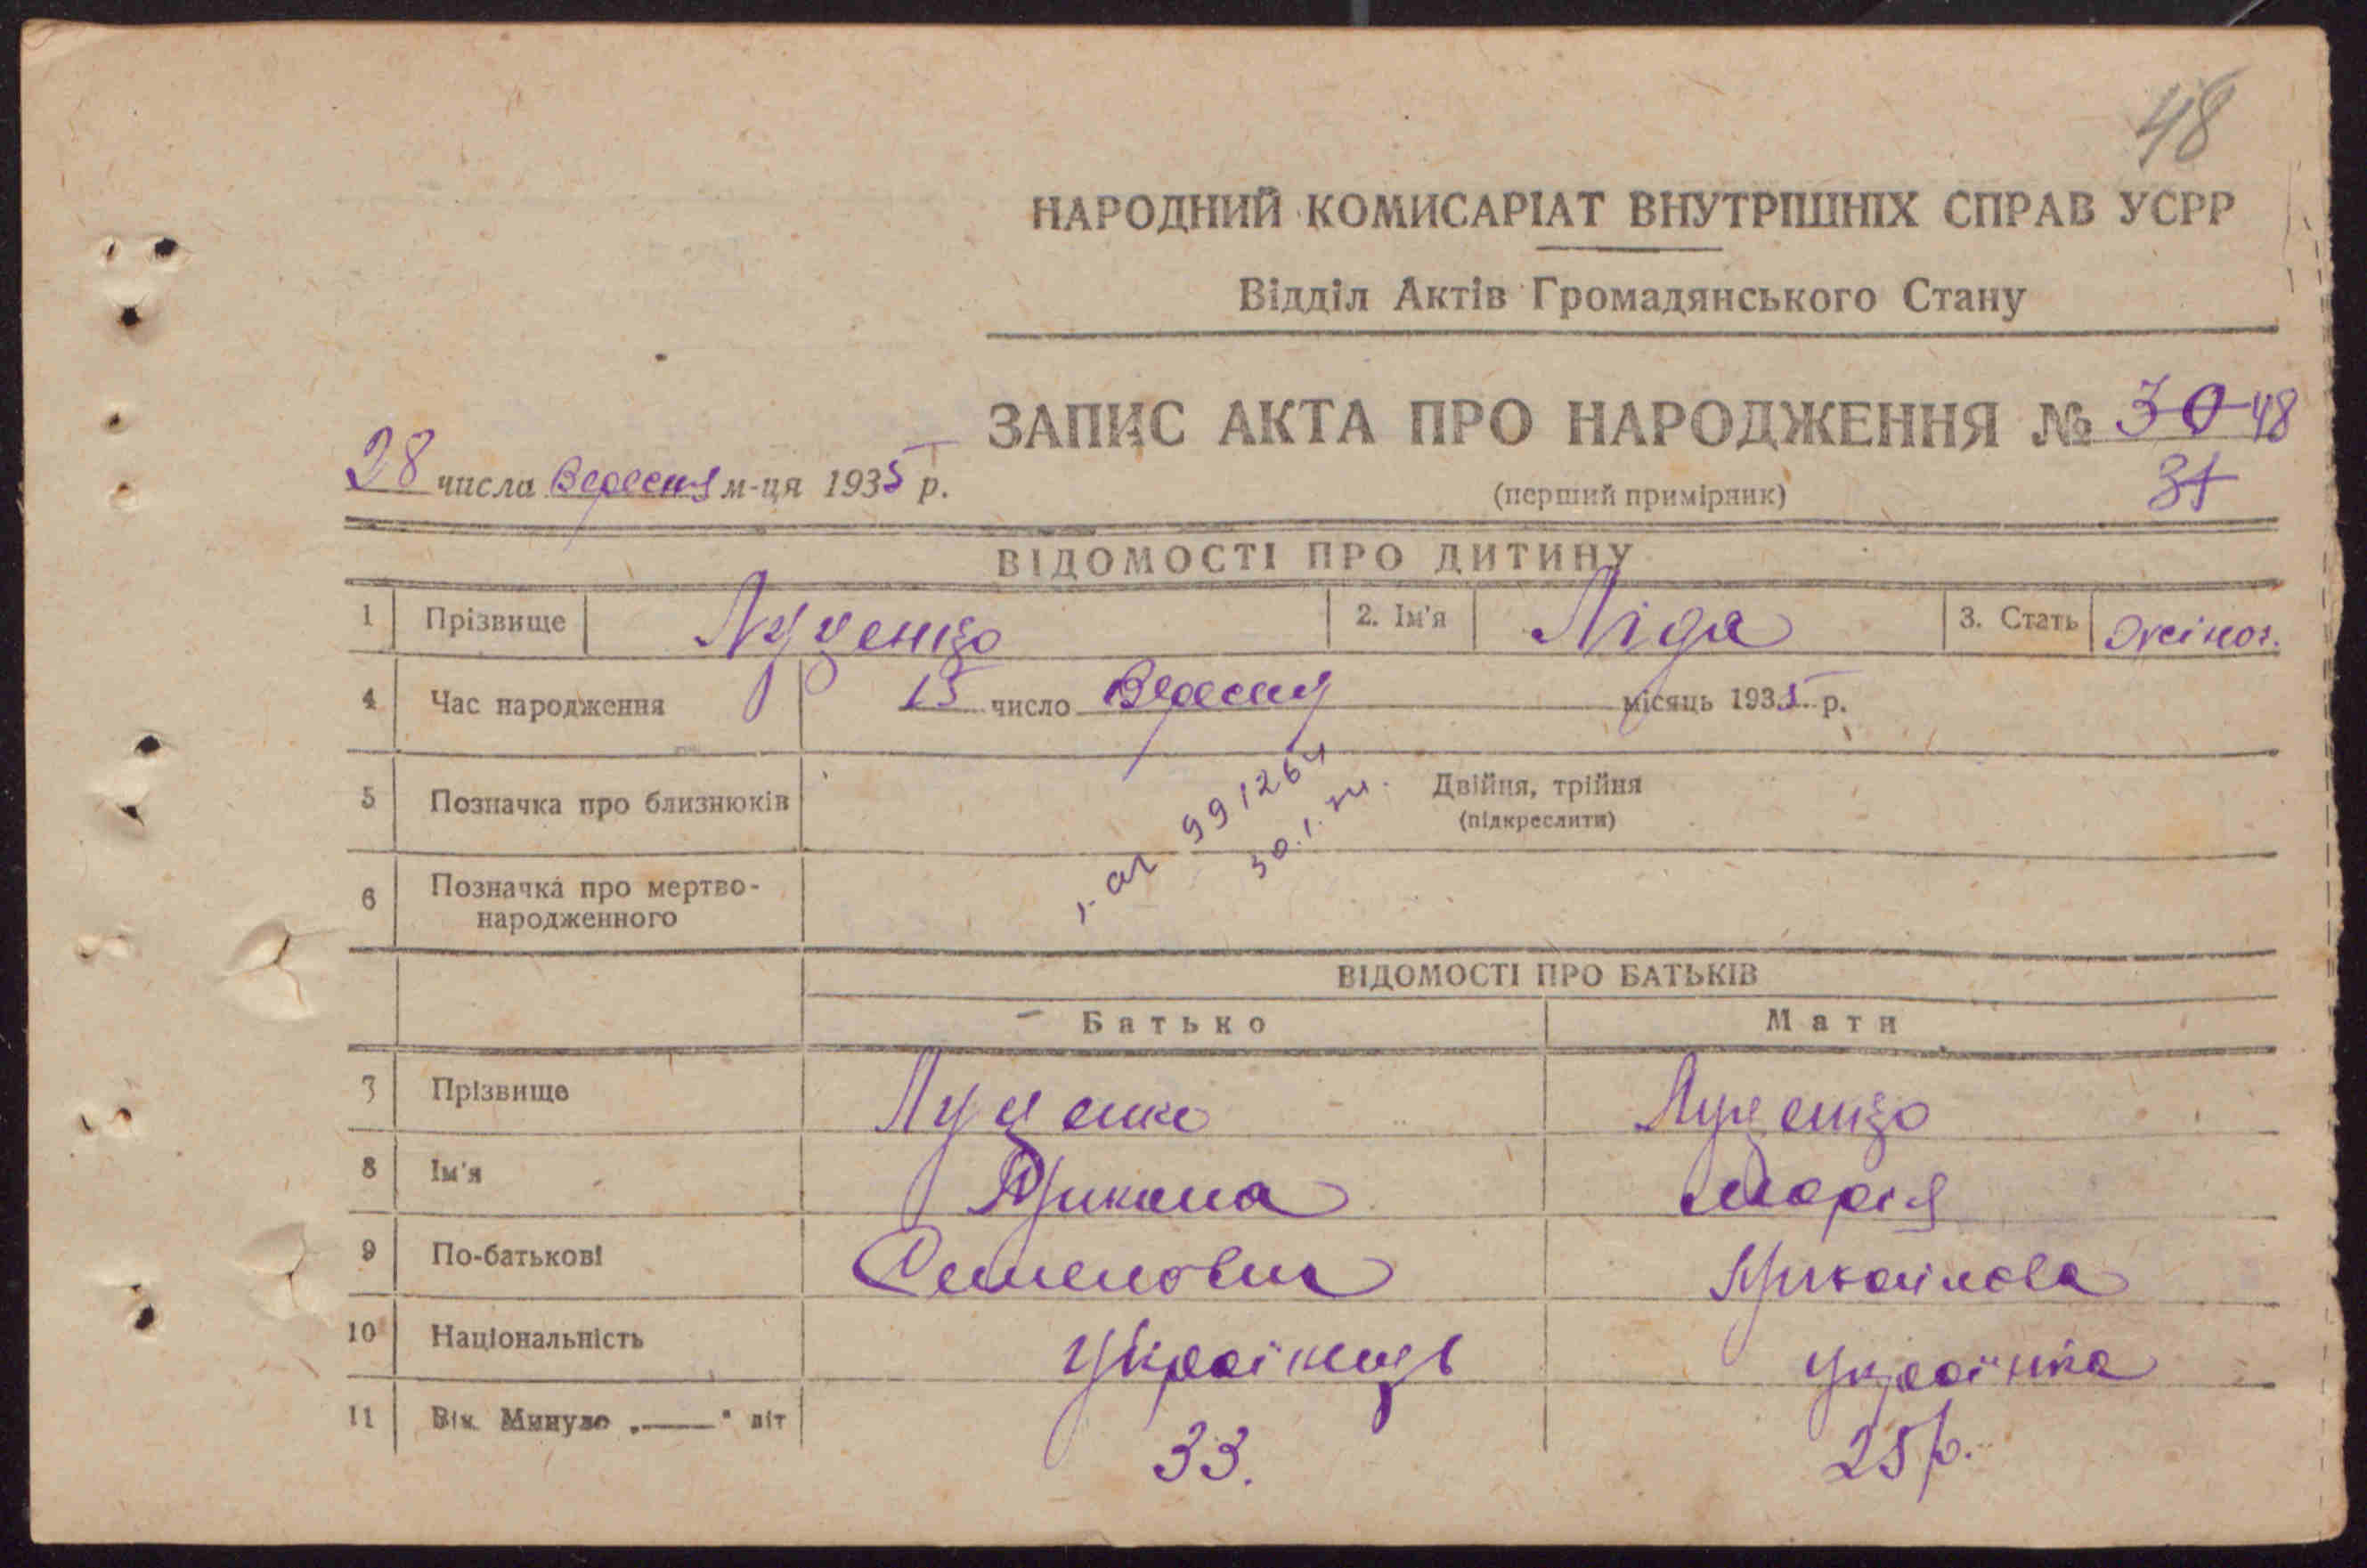 48
НАРОДНИЙ КОМИСАРІАТ ВНУТРІШНІХ СПРАВ УСРР
Відділ Актів Громадянського Стану
ЗАПИС АКТА ПРО НАРОДЖЕННЯ № 30 48
28 числа Вересня м-ця 1935 р.
(перший примірник) 31
ВІДОМОСТІ ПРО ДИТИНУ
1 Прізвище Луценко 2. Ім'я Ліда 3. Стать жіноч.
4 Час народження 15 число Вересня місяць 1935 р.
5 Позначка про близнюків Двійня, трійня
(підкреслити)
991264
6 Позначка про мертво-
народженного
ВІДОМОСТІ ПРО БАТЬКІВ
Батько Мати
7 Прізвище Луценко Луценко
8 Ім'я Микита Марія
9 По-батькові Семенович Михайлова
10 Національність Українець Українка
11 Вік. Минуло „——" літ 33. 25 р.